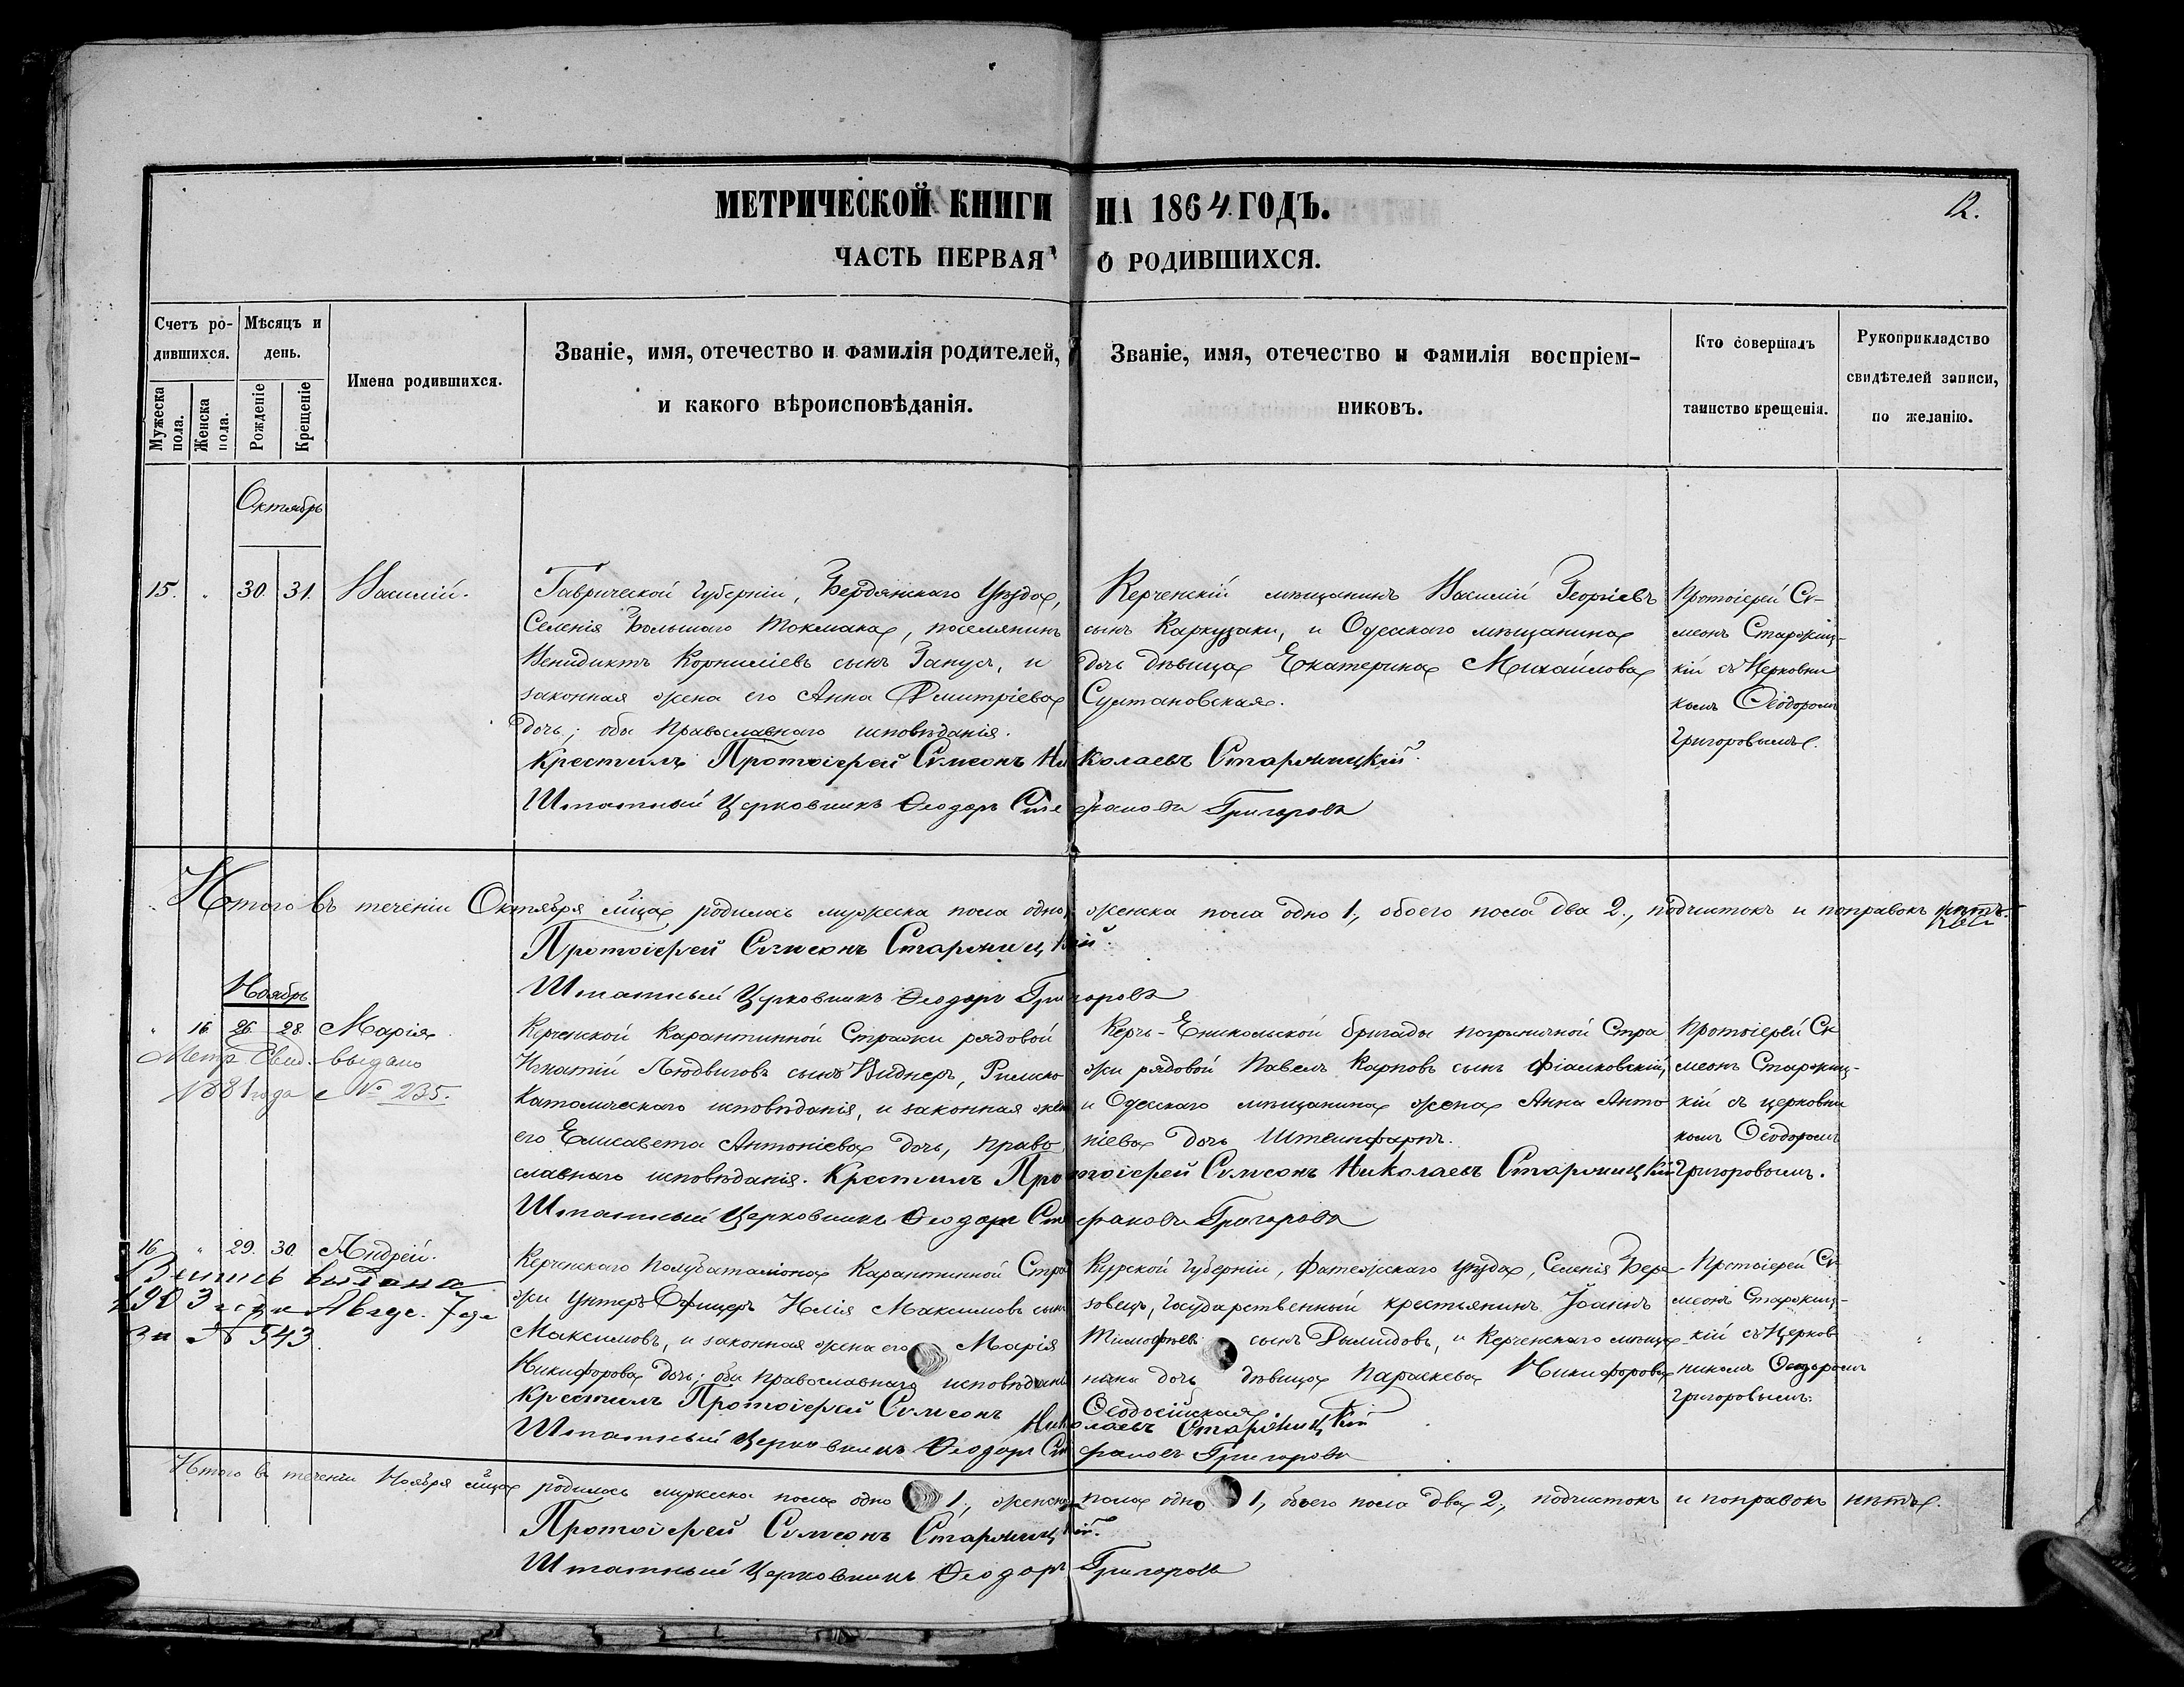 МЕТРИЧЕСКОЙ КНИГИ НА 1864 ГОДЪ.
12.
ЧАСТЬ ПЕРВАЯ О РОДИВШИХСЯ.
Счетъ ро-
дившихся.
Мужеска пола.
Женска пола.
Мѣсяцъ и
день.
Рожденіе
Крещеніе
Имена родившихся.
Званіе, имя, отечество и фамилія родителей,
и какого вѣроисповѣданія.
Званіе, имя, отечество и фамилія воспріем-
никовъ.
Кто совершалъ
таинство крещенія.
Рукоприкладство
свидѣтелей записи,
по желанію.
Октябрь
15. 30. 31. Василій.
Таврической губерніи, Бердянскаго Уѣзда,
Селенія Большаго Токмака, поселянинъ
Венидиктъ Корниліевъ сынъ Запуса, и
законная жена его Анна Дмитріева
дочь; оба Православнаго исповѣданія.
Керченскій мѣщанинъ Василій Георгіевъ
сынъ Каркузаки, и Одесскаго мѣщанина
дочь дѣвица Екатерина Михайлова
Султановская.
Протоіерей Сѵ-
меонъ Старожиц-
кій съ Церковни
комъ Ѳеодоромъ
Григоровымъ.
Крестилъ Протоіерей Сѵмеонъ Николаевъ Старжицкій.
Штатный Церковникъ Ѳеодоръ Стефановъ Григоровъ
Итого въ теченіи Октября м͠ца родилось мужеска пола одно, женска пола одно 1., обоего пола два 2., подчистокъ и поправокъ нѣтъ.
Протоіерей Сѵмеонъ Старжицкій.
Штатный Церковникъ Ѳеодоръ Григоровъ
Ноябрь
16. 26. 28. Марія
Метр. Свид. выдано
1881 года № 235.
Керченской Карантинной Стражи рядовой
Игнатій Людвиговъ сынъ Виднеръ, Римско
Католическаго исповѣданія, и законная жена
его Елисавета Антоніева дочь, право
славнаго исповѣданія. Крестилъ Протоіерей Сѵмеонъ Николаевъ Старжицкій
Керчь-Еникольской бригады пограничной Стра
жи рядовой Павелъ Карповъ сынъ Фіалковскій,
и Одесскаго мѣщанина жена Анна Анто
ніева дочь Штейнфаръ.
Протоіерей Сѵ
меонъ Старожиц-
кій съ церковни
комъ Ѳеодоромъ
Григоровымъ.
Штатный Церковникъ Ѳеодоръ Стефановъ Григоровъ
16 29. 30. Андрей.
Выпись выдана
1903 года Авгус. 7 дн
за № 543.
Керченскаго Полубаталіона Карантинной Стра
жи Унтеръ Офицеръ Илія Максимовъ сынъ
Максимовъ, и законная жена его Марія
Никифорова дочь; оба Православнаго исповѣданія
Курской губерніи, Фатежскаго уѣзда, Селенія Бере
зовецъ, Государственный крестьянинъ Іоаннъ
Тимофѣевъ сынъ Дилидовъ, и Керченскаго мѣща
нина дочь дѣвица Параскева Никифорова
Ѳеодосійская
Протоіерей Сѵ
меонъ Старожиц-
кій съ Церков
никомъ Ѳеодоромъ
Григоровымъ.
Крестилъ Протоіерей Сѵмеонъ Николаевъ Старжицкій
Штатный Церковникъ Ѳеодоръ Стефановъ Григоровъ
Итого въ теченіи Ноября м͠ца родилось мужеска пола одно 1., женска пола одно 1, обоего пола два 2., подчистокъ и поправокъ нѣтъ.
Протоіерей Сѵмеонъ Старжицкій.
Штатный Церковникъ Ѳеодоръ Григоровъ